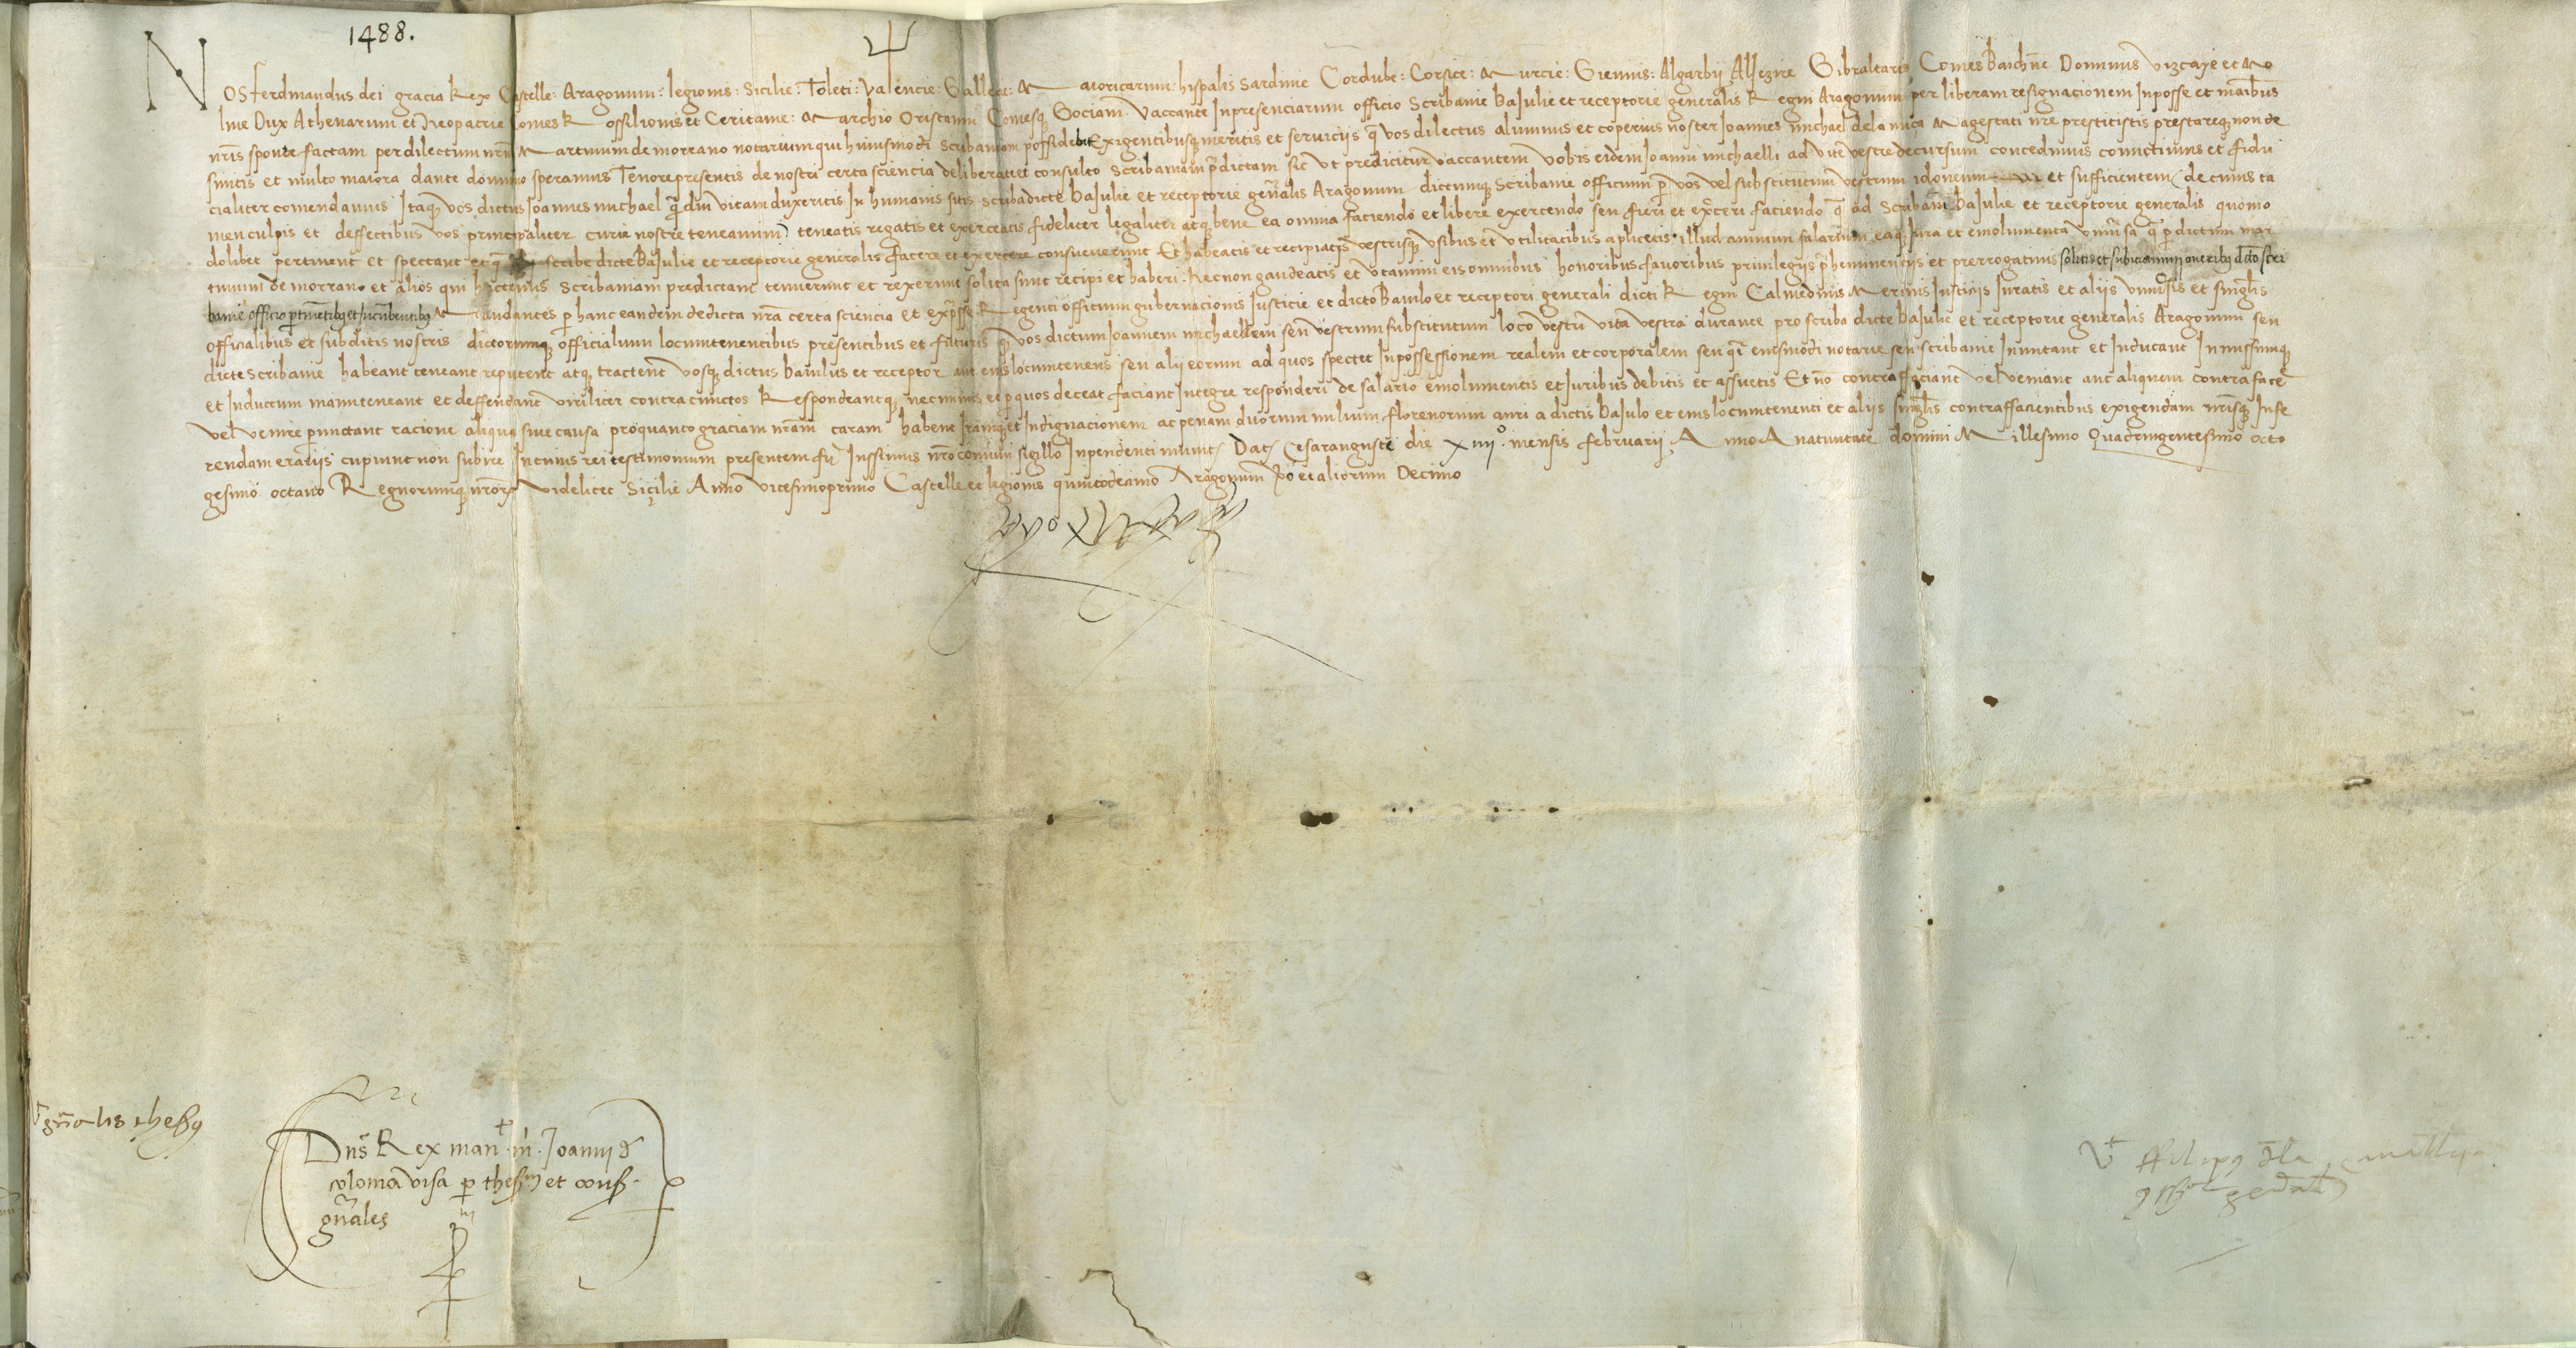 1488.
NOS ferdinandus dei gracia Rex Castelle: Aragonum: legionis: Sicilie: Toleti: Valencie: Gallecie: Maioricarum: hispalis Sardinie Cordube: Corsice: Murcie: Giennis: Algarbij Aljezire Gibraltaris Comes Barchñe Dominus vizcaye et Mo
line Dux Athenarum et Neopatrie Comes Rossilionis et Ceritanie: Marchio Oristanni Comesq Gociani. Vaccante Inpresenciarum officio Scribanie baJulie et receptorie generalis Regni Aragonum per liberam resignacionem Inposse et manibus
nr̃is sponte factam per dilectum nrũ Martinum de morrano notarium qui huiusmodi Scribaniam possidebat Exigentibusq meritis et seruiciis q̃ vos dilectus alumnus et coperius noster Joannes michael de la nuça Magestati nr̃e prestitistis prestareq non de
sinitis et multo maiora dante domino speramus Tenore presentis de nostri certa sciencia deliberate et consulto Scribaniam p̃dictam sic vt predicitur vaccantem vobis eidem Joanni michaelli ad vite vestre decursum concedimus comictimus et fidu
cialiter comendamus Itaq vos dictus Joannes michael q̃ diu vitam duxeritis In humanis sitis scriba dicte baJulie et receptorie gen̄alis Aragonum dictumq Scribanie officium p vos vel substitutum vestrum idoneum et sufficientem de cuius ta
men culpis et deffectibus vos principaliter curie nostre teneamini teneatis regatis et exerceatis fideliter legaliter atq bene ea omnia faciendo et libere exercendo seu fieri et exerceri faciendo q̃ ad Scribaniam baJulie et receptorie generalis quomo
dolibet pertinent et spectant et q̃ scribe dicte baJulie et receptorie generalis facere et exercere consueuerunt Et habeatis et recipiatis vestrisq vsibus et vtilitatibus aplicetis illud annuum salarium eaq Jura et emolumenta vniuersa q̃ p dictum mar
tinum de morrano et alios qui hactenus Scribaniam predictam tenuerunt et rexerunt solita sunt recipi et haberi. Necnon gaudeatis et vtamini eis omnibus honoribus fauoribus priuilegijs p̃heminencijs et prerrogatiuis solitis et subiciamini oneribq dicto scri
banie officio pertinẽtibq et Incũbentibq Mandantes p hanc eandem de dicta nr̃a certa sciencia et expresse Regenti officium gubernacionis Justicie et dicto baiulo et receptori generali dicti Regni Calmedinis Merinis Justicijs Juratis et alijs vniuersis et singulis
officialibus et subditis nostris dictorumq officialium locumtenentibus presentibus et futuris q̃ vos dictum Joannem michaellem seu vestrum substitutum loco vestri vita vestra durante pro scriba dicte baJulie et receptorie generalis Aragonum seu
dicte scribanie habeant teneant reputent atq tractent vosq dictus baiulus et receptor aut eius locumtenens seu alii eorum ad quos spectet Inpossessionem realem et corporalem seu q̃i eiusmodi notarie seu scribanie Inmitant et Inducant Inmissumq
et Inductum manuteneant et deffendant viriliter contra cunctos Respondeantq necminus et p quos deceat faciant Integre responderi de salario emolumentis et Juribus debitis et assuetis Et nõ contraffaciant vel veniant aut aliquem contrafacẽ
vel venire permictant racione aliqua siue causa pro quanto graciam nr̃am caram habent Iramq et Indignacionem ac penam duorum milium florenorum auri a dictis baJulo et eius locumtenenti et alijs singulis contraffacientibus exigendam nr̃isq Infe
rendam erarijs cupiunt non subire In cuius rei testimonium presentem fieri Iussimus nr̃o comuni sigillo Inpendenti munit Dat Cesarauguste die xiiijº. mensis februarij Anno A natiuitate domini Millesimo Quadringentesimo octo
gesimo octauo Regnorumq nr̃orũ videlicet Sicilie Anno vicesimoprimo Castelle et legionis quintodecimo Aragonum vo et aliorum Decimo
gñalis thesq
Dns Rex man.t m. Joanni de
coloma visa p thesm et cons.
gñales